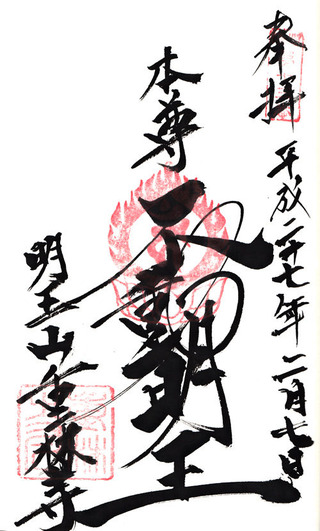 奉拝 平成二十七年二月七日
本尊
不動明王
明王山宝林寺